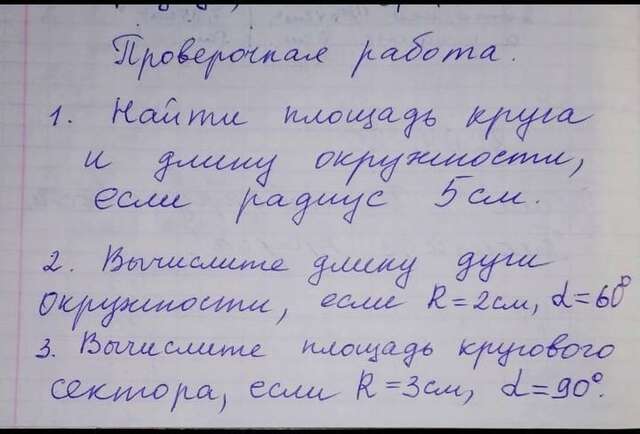 Проверочная работа.
1. Найти площадь круга
и длину окружности,
если радиус 5см.
2. Вычислите длину дуги
окружности, если R=2см, α=60°
3. Вычислите площадь кругового
сектора, если R=3см, α=90°.